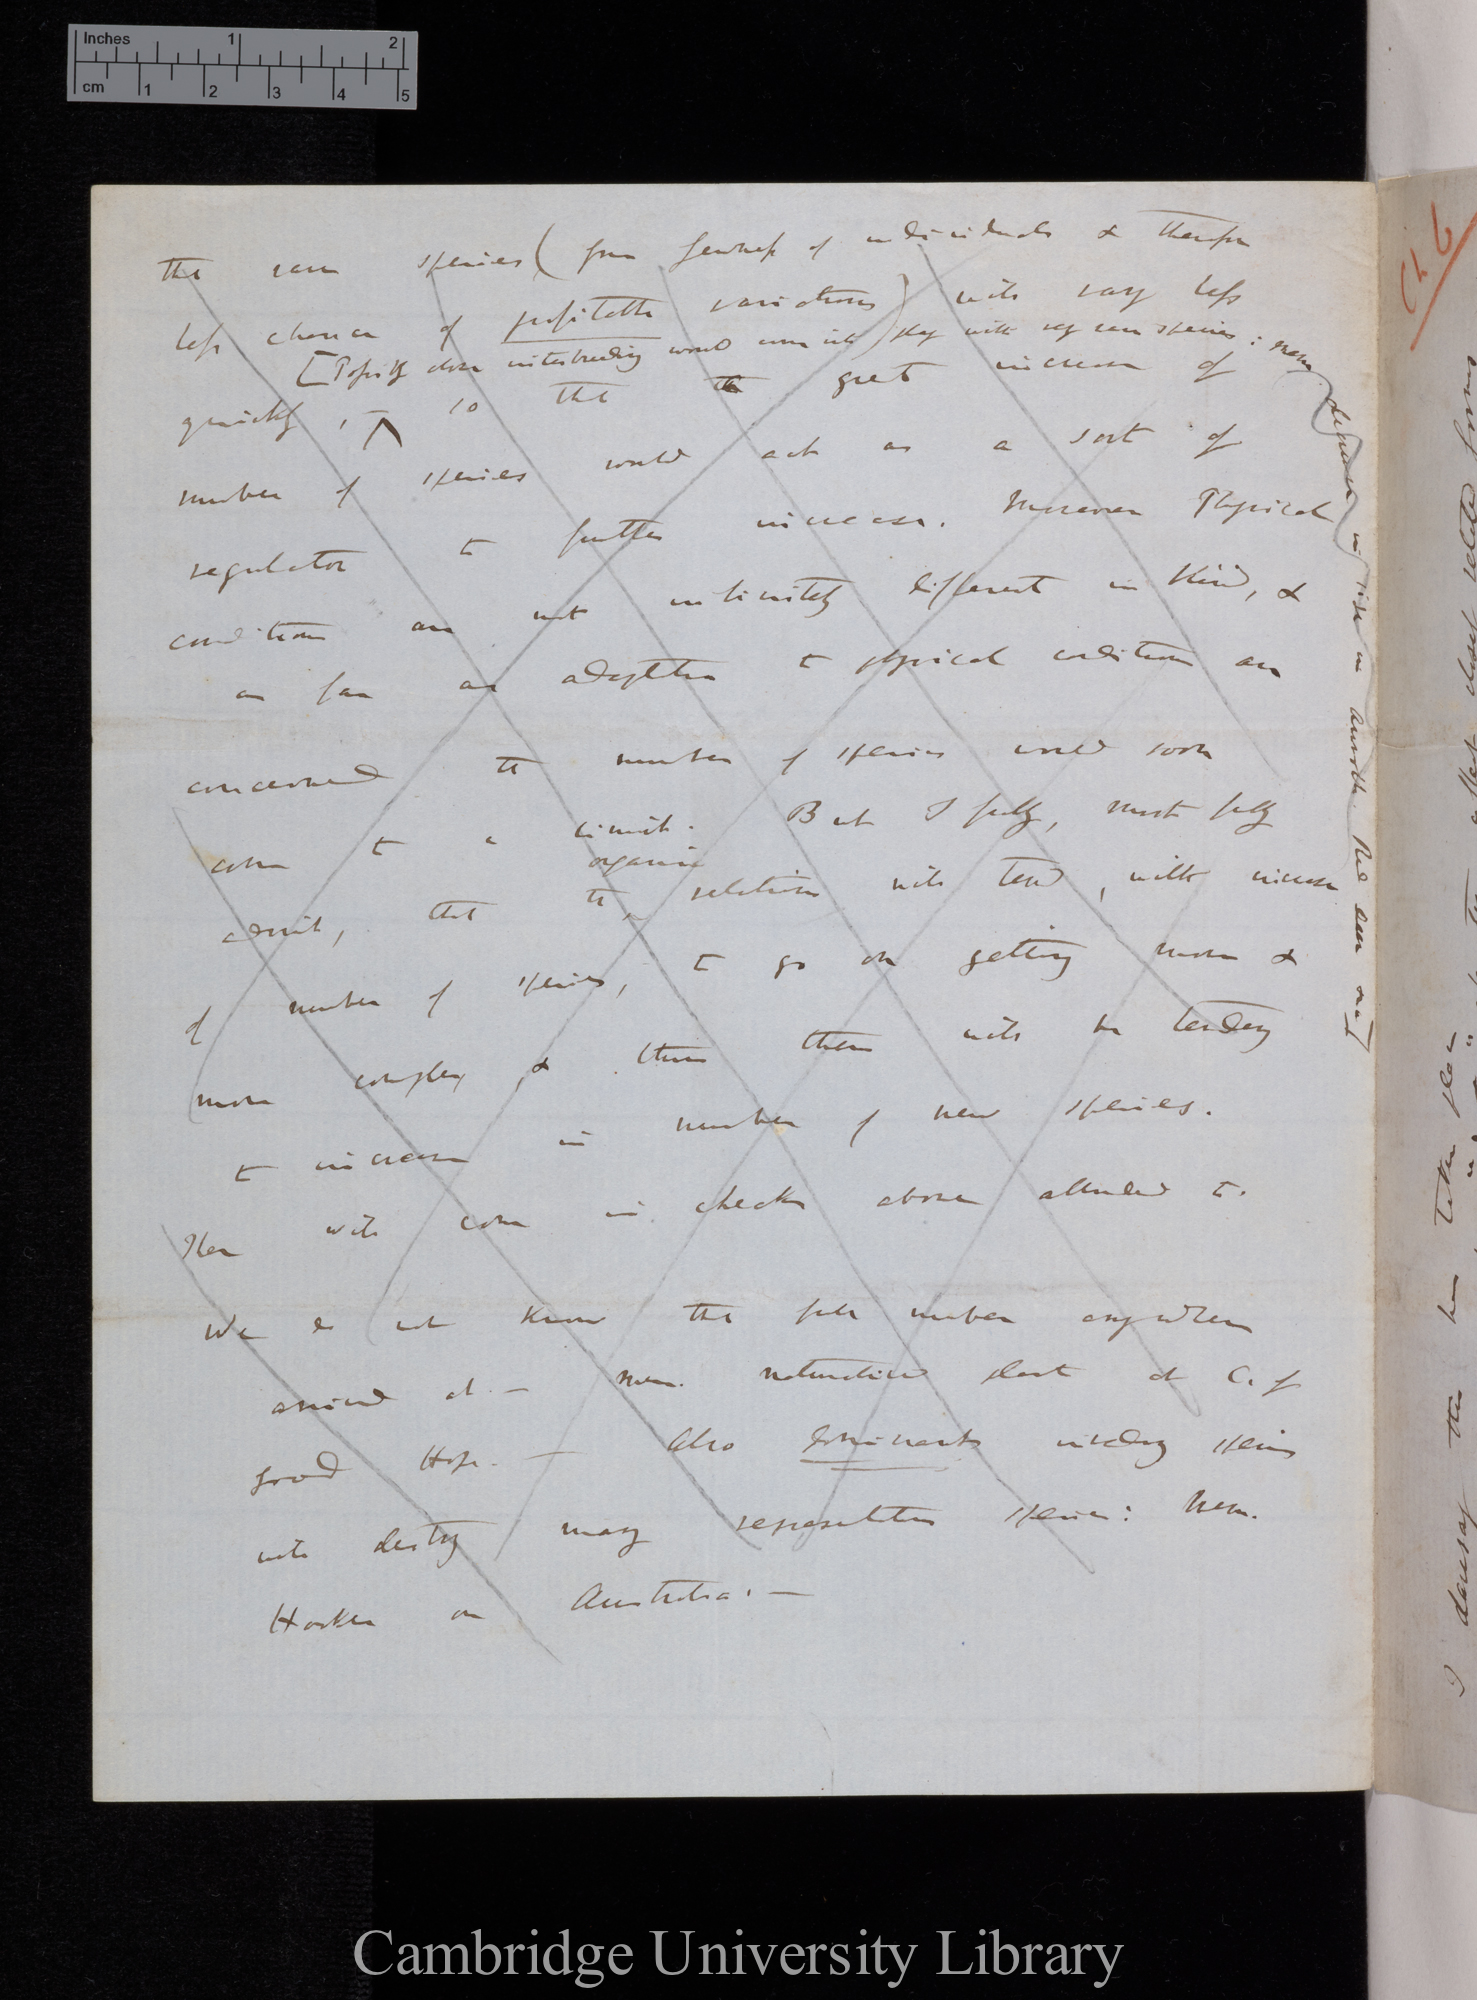 Inches 1 2
cm 1 2 3 4 5
the rare species (from fewness of individuals & therefore
less chance of profitable variations) will vary less
[Possibly close interbreeding would come into play with very rare species: Mem.
quickly, — so that the great increase of
number of species would act as a sort of
regulator to further increase. Moreover Physical
conditions are not infinitely different in kind, &
as far as adaptation to physical conditions are
concerned the number of species would soon
come to a limit. But I fully, most fully
organic
admit, that the relations will tend, with increase
of number of species, to go on getting more &
more complex, & thus there will be tendency
to increase in number of new species.
Here will come in checks above alluded to.
We do not know the full number anywhere
arrived at. — Mem. naturalised plants at C. of
Good Hope. — Also dominant invading species
will destroy many representative species: Mem.
Hooker on Australia. —
Ch 6
Cambridge University Library